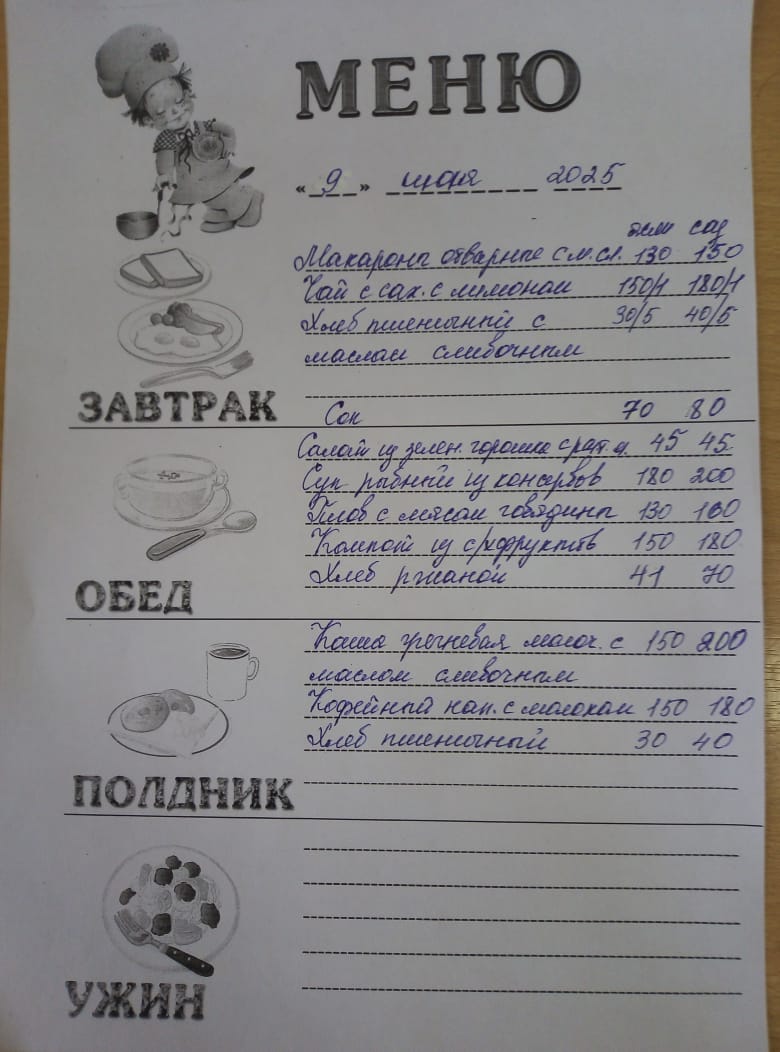 МЕНЮ
« 9 » июля 2025
ясли сад
Макароны отварные с м.сл. 130 150
Чай с сах. с лимоном 150/1 180/1
Хлеб пшеничный с 30/5 40/5
маслом сливочным
ЗАВТРАК
Сок 70 80
Салат из зелен. горошка с раст. м. 45 45
Суп рыбный из консервов 180 200
Плов с мясом говядины 130 160
Компот из с/хфруктов 150 180
Хлеб ржаной 41 70
ОБЕД
Каша гречневая молоч. с 150 200
маслом сливочным
Кофейный нап. с молоком 150 180
Хлеб пшеничный 30 40
ПОЛДНИК
УЖИН